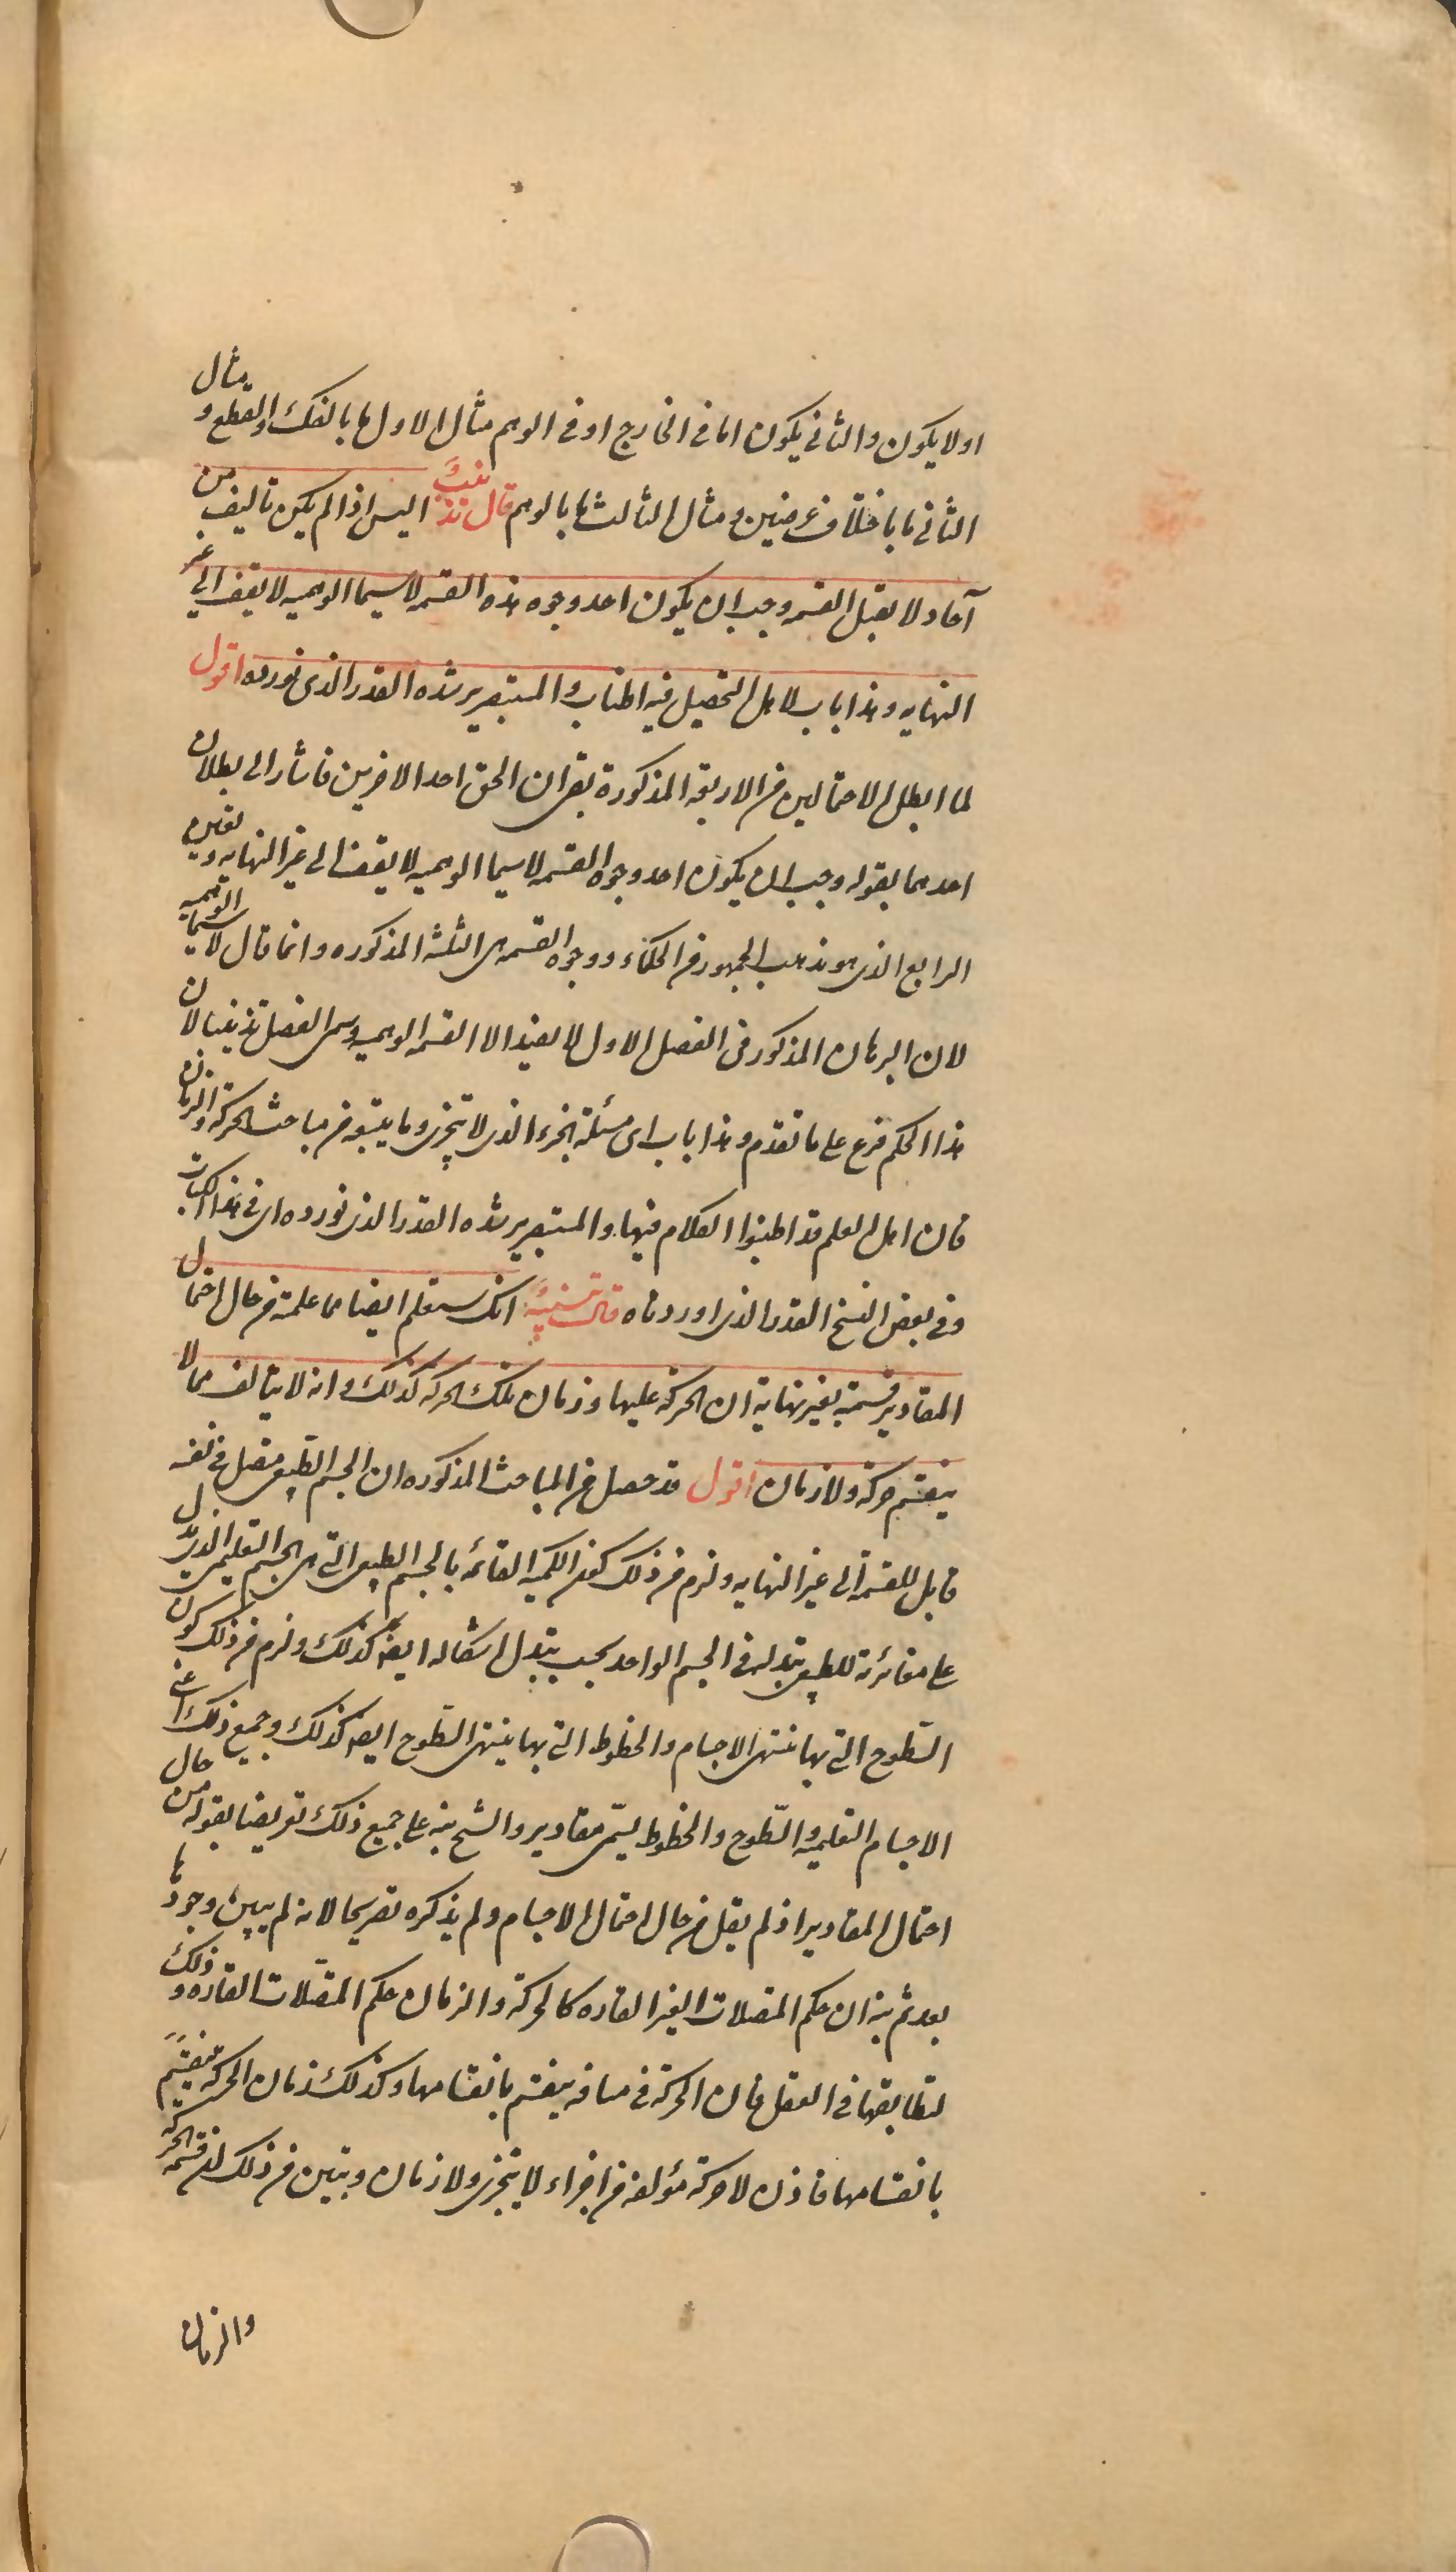 او لا يكون والثاني يكون اما في الخارج او في الوهم مثال الاول ما بالفك والقطع ومثال
الثاني ما باختلاف عرضين ومثال الثالث ما بالوهم قال تذنيب اليس اذا لم يكن تاليف من
آحاد لا يقبل القسمه وجب ان يكون احد وجوه هذه القسمه لاسيما الوهميه لا يقف الى غير
النهايه وهذا باب لاهل التحصيل فيه اطناب والمستبصر يرشده القدر الذي نورده اقول
لما ابطل الاحتمالين من الاربعة المذكورة بقي ان الحق احد الاخرين فاشار الى بطلان
احدهما بقوله وجب ان يكون احد وجوه القسمه لاسيما الوهميه لا يقف الى غير النهايه وتعين
الرابع الذي هو مذهب الجمهور من الحكماء ووجوه القسمه هي الثلثة المذكوره وانما قال لاسيما الوهميه
لان البرهان المذكور في الفصل الاول لا يفيد الا القسمه الوهميه وسمى الفصل تذنيبا لان
هذا الحكم فرع على ما تقدم وهذا باب اى مسئلة الجزء الذي لا يتجزى وما يتبعه من مباحث الحركة والزمان
فان اهل العلم قد اطنبوا الكلام فيها والمستبصر يرشده القدر الذي نورده اى في هذا الكتاب
وفي بعض النسخ القدر الذي اوردناه قال تنبيه انك ستعلم ايضا مما علمته من حال احتمال
المقادير قسمة بغير نهاية ان الحركة عليها وزمان تلك الحركه كذلك وانه لا يتالف مما لا
ينقسم حركة ولا زمان اقول قد حصل من المباحث المذكوره ان الجسم الطبيعي متصل في نفسه
قابل للقسمة الى غير النهايه ولزم من ذلك كون الكميه القائمه بالجسم الطبيعي التي هي الجسم التعليمي الذي يدل
على مغائرته للطبيعي تبدله في الجسم الواحد بحسب تبدل اشكاله ايضا كذلك ولزم من ذلك كون
السّطوح التي بها تنتهى الاجسام والخطوط التي بها ينتهى السّطوح ايضا كذلك وجميع ذلك اعني
الاجسام التعليميه والسّطوح والخطوط يسمّى مقادير والشيخ نبه على جميع ذلك تعريضا بقوله من حال
احتمال المقادير اذ لم يقل من حال احتمال الاجسام ولم يذكره تصريحا لانه لم يبين وجودها
بعد ثم نبه ان حكم المتصلات الغير القاره كالحركة والزمان حكم المتصّلات القاره وذلك
لتطابقها في العقل فان الحركة في مسافه ينقسم بانقسامها وكذلك زمان الحركه ينقسم
بانقسامها فاذن لا حركة مؤلفه من اجزاء لا يتجزى ولا زمان وتبين من ذلك ان قسمة الحركة
والزمان